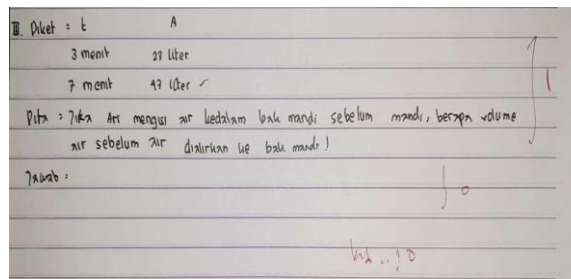 III. Diket : t A
3 menit 23 liter
7 menit 47 liter
Dita : Jika Ari mengisi air kedalam bak mandi sebelum mandi, berapa volume
air sebelum air dialirkan ke bak mandi !
Jawab :
1
0
0